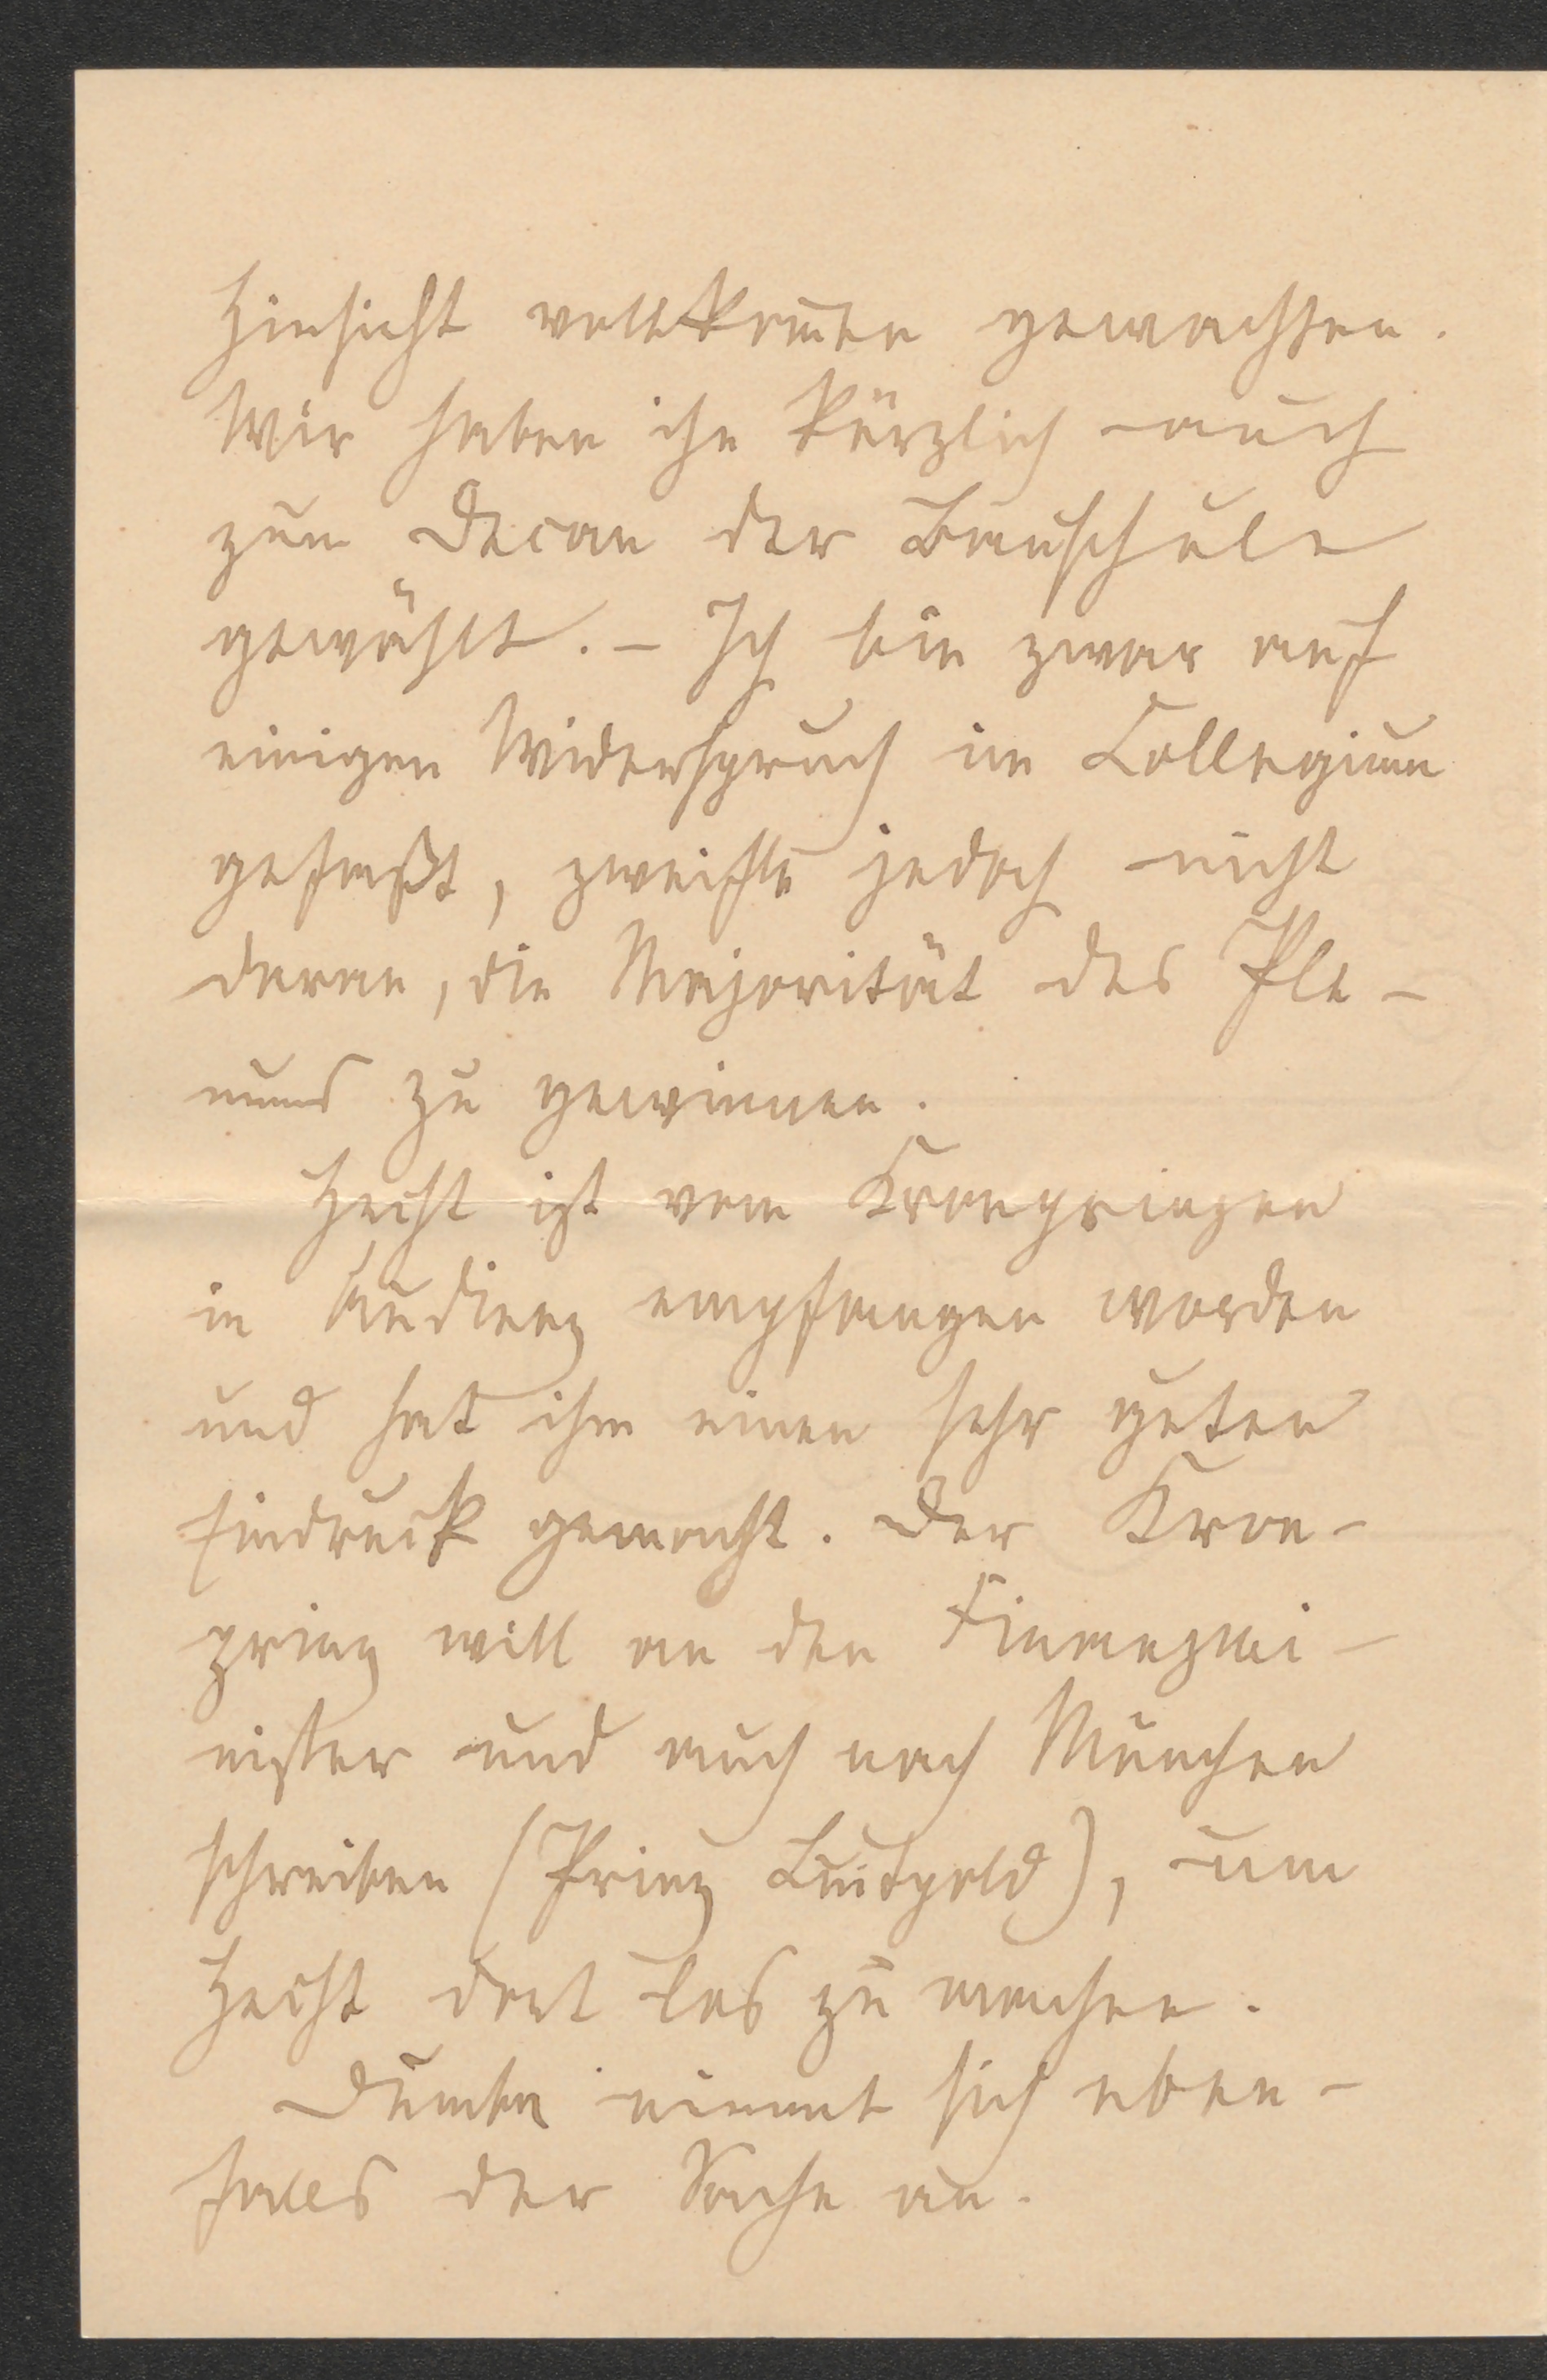 Hinsicht vollkom̅en gewachsen.
Wir haben ihn kürzlich auch
zum Decan der Bauschule
gewählt. – Ich bin zwar auf
einigen Widerspruch im Collegium
gefaßt, zweifle jedoch nicht
daran, die Majorität des Ple-
nums zu gewinnen.
Hecht ist vom Kronprinzen
in Audienz empfangen worden
und hat ihm einen sehr guten
Eindruck gemacht. Der Kron-
prinz will an den Finanzmi-
nister und auch nach München
schreiben (Prinz Luitpold), um
Hecht dort los zu machen.
Dumba nimmt sich eben-
falls der Sache an.